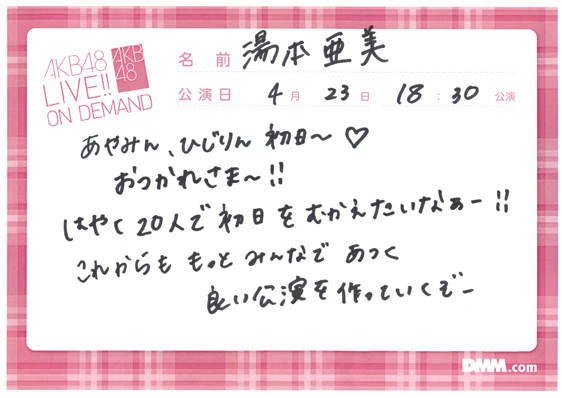 AKB48
LIVE!!
ON DEMAND
AKB
48
名前 湯本亜美
公演日 4月 23日 18:30 公演
あやみん、ひじりん 初日〜♡
おつかれさま〜!!
はやく20人で初日をむかえたいなぁー!!
これからも もっと みんなで あつく
良い公演を作っていくぞー
DMM.com